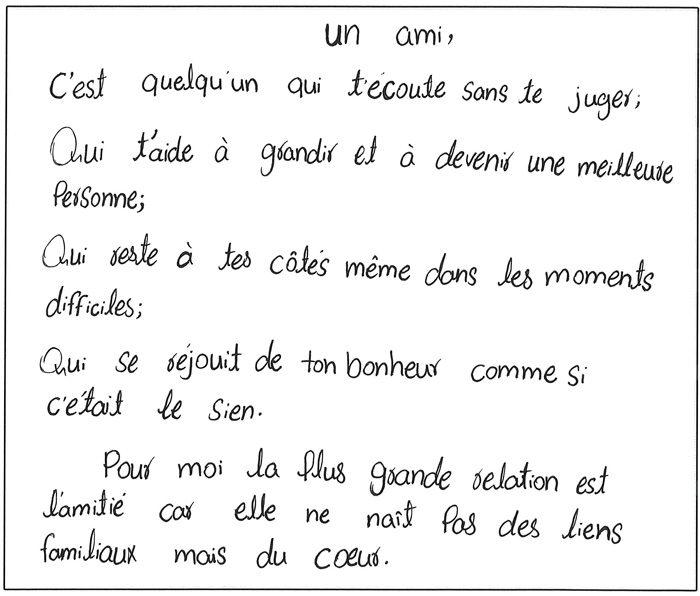 un ami,
C'est quelqu'un qui t'écoute sans te juger;
Qui t'aide à grandir et à devenir une meilleure
Personne;
Qui reste à tes côtés même dans les moments
difficiles;
Qui se réjouit de ton bonheur comme si
c'était le sien.
Pour moi la plus grande relation est
l'amitié car elle ne naît pas des liens
familiaux mais du coeur.